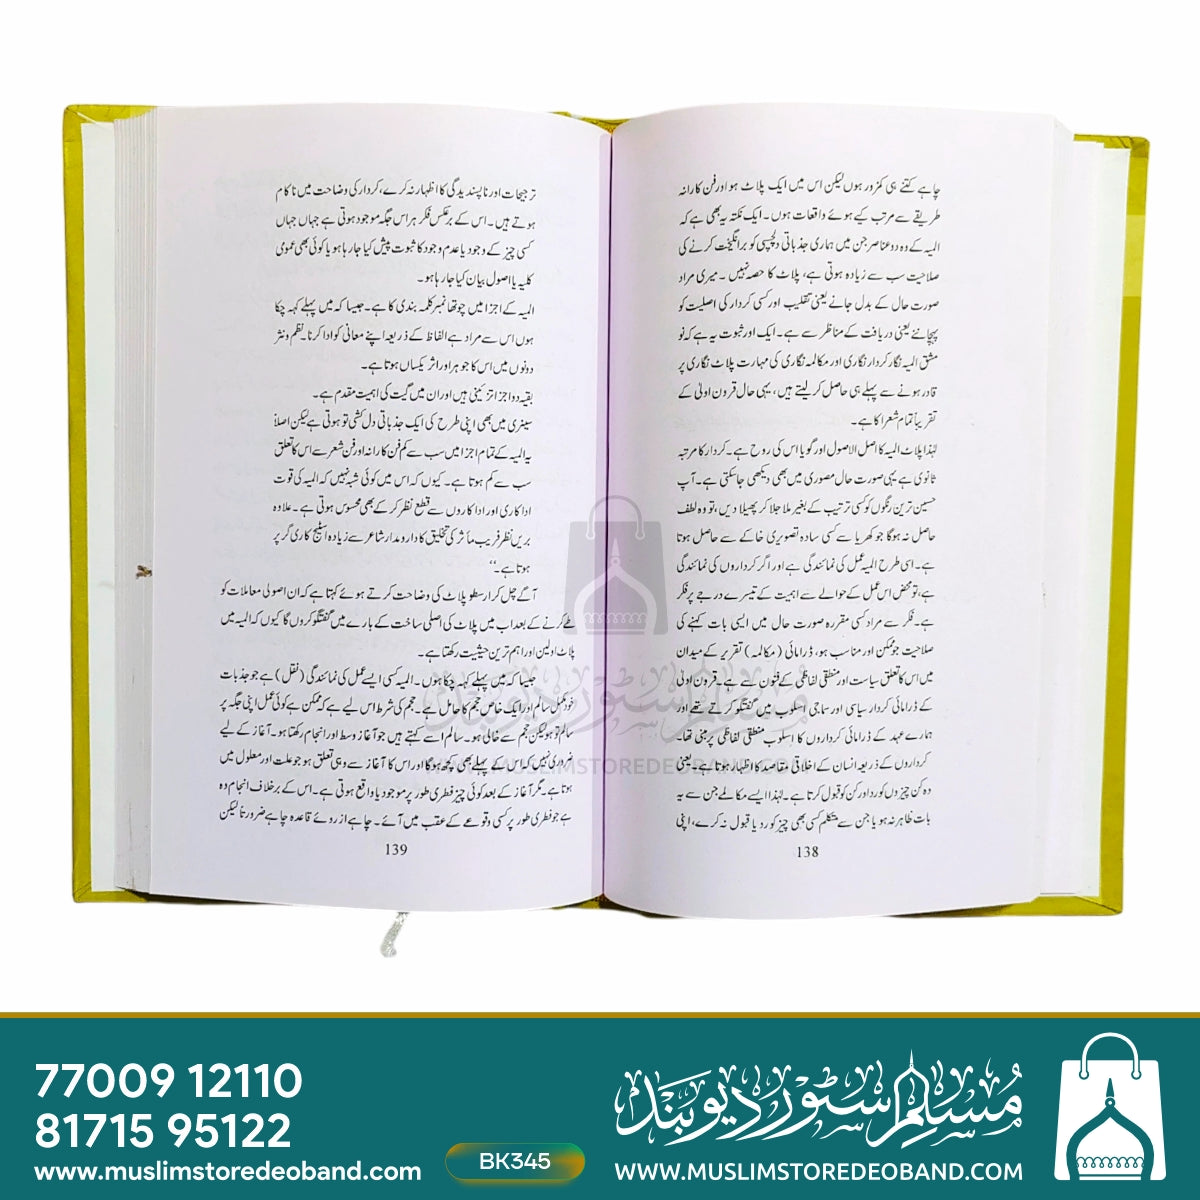 چاہے کتنے ہی کمزور ہوں لیکن اس میں ایک پلاٹ ہو اور فن کارانہ
طریقے سے مرتب کیے ہوئے واقعات ہوں۔ ایک نکتہ یہ بھی ہے کہ
المیہ کے وہ دو عناصر جن میں ہماری جذباتی دلچسپی کو برانگیخت کرنے کی
صلاحیت سب سے زیادہ ہوتی ہے، پلاٹ کا حصہ نہیں۔ میری مراد
صورت حال کے بدل جانے یعنی تقلیب اور کسی کردار کی اصلیت کو
پہچاننے یعنی دریافت کے مناظر سے ہے۔ ایک اور ثبوت یہ ہے کہ نو
مشق المیہ نگار کردار نگاری اور مکالمہ نگاری کی مہارت پلاٹ نگاری پر
قادر ہونے سے پہلے ہی حاصل کر لیتے ہیں، یہی حال قرون اولیٰ کے
تقریباً تمام شعرا کا ہے۔
لہٰذا پلاٹ المیہ کا اصل الاصول اور گویا اس کی روح ہے۔ کردار کا مرتبہ
ثانوی ہے یہی صورت حال مصوری میں بھی دیکھی جا سکتی ہے۔ آپ
حسین ترین رنگوں کو کسی ترتیب کے بغیر ملا جلا کر پھیلا دیں، تو وہ لطف
حاصل نہ ہو گا جو کھریا سے کسی سادہ تصویری خاکے سے حاصل ہوتا
ہے۔ اسی طرح المیہ عمل کی نمائندگی ہے اور اگر کرداروں کی نمائندگی
ہے، تو محض اس عمل کے حوالے سے اہمیت کے تیسرے درجے پر فکر
ہے۔ فکر سے مراد کسی مقررہ صورت حال میں ایسی بات کہنے کی
صلاحیت جو ممکن اور مناسب ہو، ڈرامائی (مکالمہ) تقریر کے میدان
میں اس کا تعلق سیاست اور منطقی لفاظی کے فنون سے ہے۔ قرون اولیٰ
کے ڈرامائی کردار سیاسی اور سماجی اسلوب میں گفتگو کرتے تھے اور
ہمارے عہد کے ڈرامائی کرداروں کا اسلوب منطقی لفاظی پر مبنی تھا۔
کرداروں کے ذریعہ انسان کے اخلاقی مقاصد کا اظہار ہوتا ہے۔ یعنی
وہ کن چیزوں کو رد اور کن کو قبول کرتا ہے۔ لہٰذا ایسے مکالمے جن سے یہ
بات ظاہر نہ ہو یا جن سے متکلم کسی بھی چیز کو رد یا قبول نہ کرے، اپنی
138
ترجیحات اور ناپسندیدگی کا اظہار نہ کرے، کردار کی وضاحت میں ناکام
ہوتے ہیں۔ اس کے برعکس فکر ہر اس جگہ موجود ہوتی ہے جہاں جہاں
کسی چیز کے وجود یا عدم وجود کا ثبوت پیش کیا جا رہا ہو یا کوئی بھی عمومی
کلیہ یا اصول بیان کیا جا رہا ہو۔
المیہ کے اجزا میں چوتھا نمبر کلمہ بندی کا ہے۔ جیسا کہ میں پہلے کہہ چکا
ہوں اس سے مراد ہے الفاظ کے ذریعہ اپنے معانی کو ادا کرنا۔ نظم و نثر
دونوں میں اس کا جوہر اور اثر یکساں ہوتا ہے۔
بقیہ دو اجزا تزئینی ہیں اور ان میں گیت کی اہمیت مقدم ہے۔
سینری میں بھی اپنی طرح کی ایک جذباتی دل کشی تو ہوتی ہے لیکن اصلاً
یہ المیہ کے تمام اجزا میں سب سے کم فن کارانہ اور فن شعر سے اس کا تعلق
سب سے کم ہوتا ہے۔ کیوں کہ اس میں کوئی شبہ نہیں کہ المیہ کی قوت
اداکاری اور اداکاروں سے قطع نظر کر کے بھی محسوس ہوتی ہے۔ علاوہ
بریں نظر فریب مآثر کی تخلیق کا دارومدار شاعر سے زیادہ اسٹیج کاری گر پر
ہوتا ہے۔‘‘
آگے چل کر ارسطو پلاٹ کی وضاحت کرتے ہوئے کہتا ہے کہ ان اصولی معاملات کو
طے کرنے کے بعد اب میں پلاٹ کی اصلی ساخت کے بارے میں گفتگو کروں گا کیوں کہ المیہ میں
پلاٹ اولین اور اہم ترین حیثیت رکھتا ہے۔
جیسا کہ میں پہلے کہہ چکا ہوں۔ المیہ کسی ایسے عمل کی نمائندگی (نقل) ہے جو جذبات
خود مکمل سالم اور ایک خاص حجم کا حامل ہے۔ حجم کی شرط اس لیے ہے کہ ممکن ہے کوئی عمل اپنی جگہ پر
سالم تو ہو لیکن حجم سے خالی ہو۔ سالم اسے کہتے ہیں جو آغاز وسط اور انجام رکھتا ہو۔ آغاز کے لیے
ضروری نہیں کہ اس کے پہلے بھی کچھ ہو گا اور اس کا آغاز سے وہی تعلق ہو جو علت اور معلول میں
ہوتا ہے۔ مگر آغاز کے بعد کوئی چیز فطری طور پر موجود یا واقع ہوتی ہے۔ اس کے برخلاف انجام وہ
ہے جو فطری طور پر کسی وقوعے کے عقب میں آئے۔ چاہے از روئے قاعدہ چاہے ضرورتاً لیکن
139
مسلم سٹور دیوبند
WWW.MUSLIMSTOREDEOBAND.COM
77009 12110
81715 95122
www.muslimstoredeoband.com
BK345
مسلم سٹور دیوبند
WWW.MUSLIMSTOREDEOBAND.COM